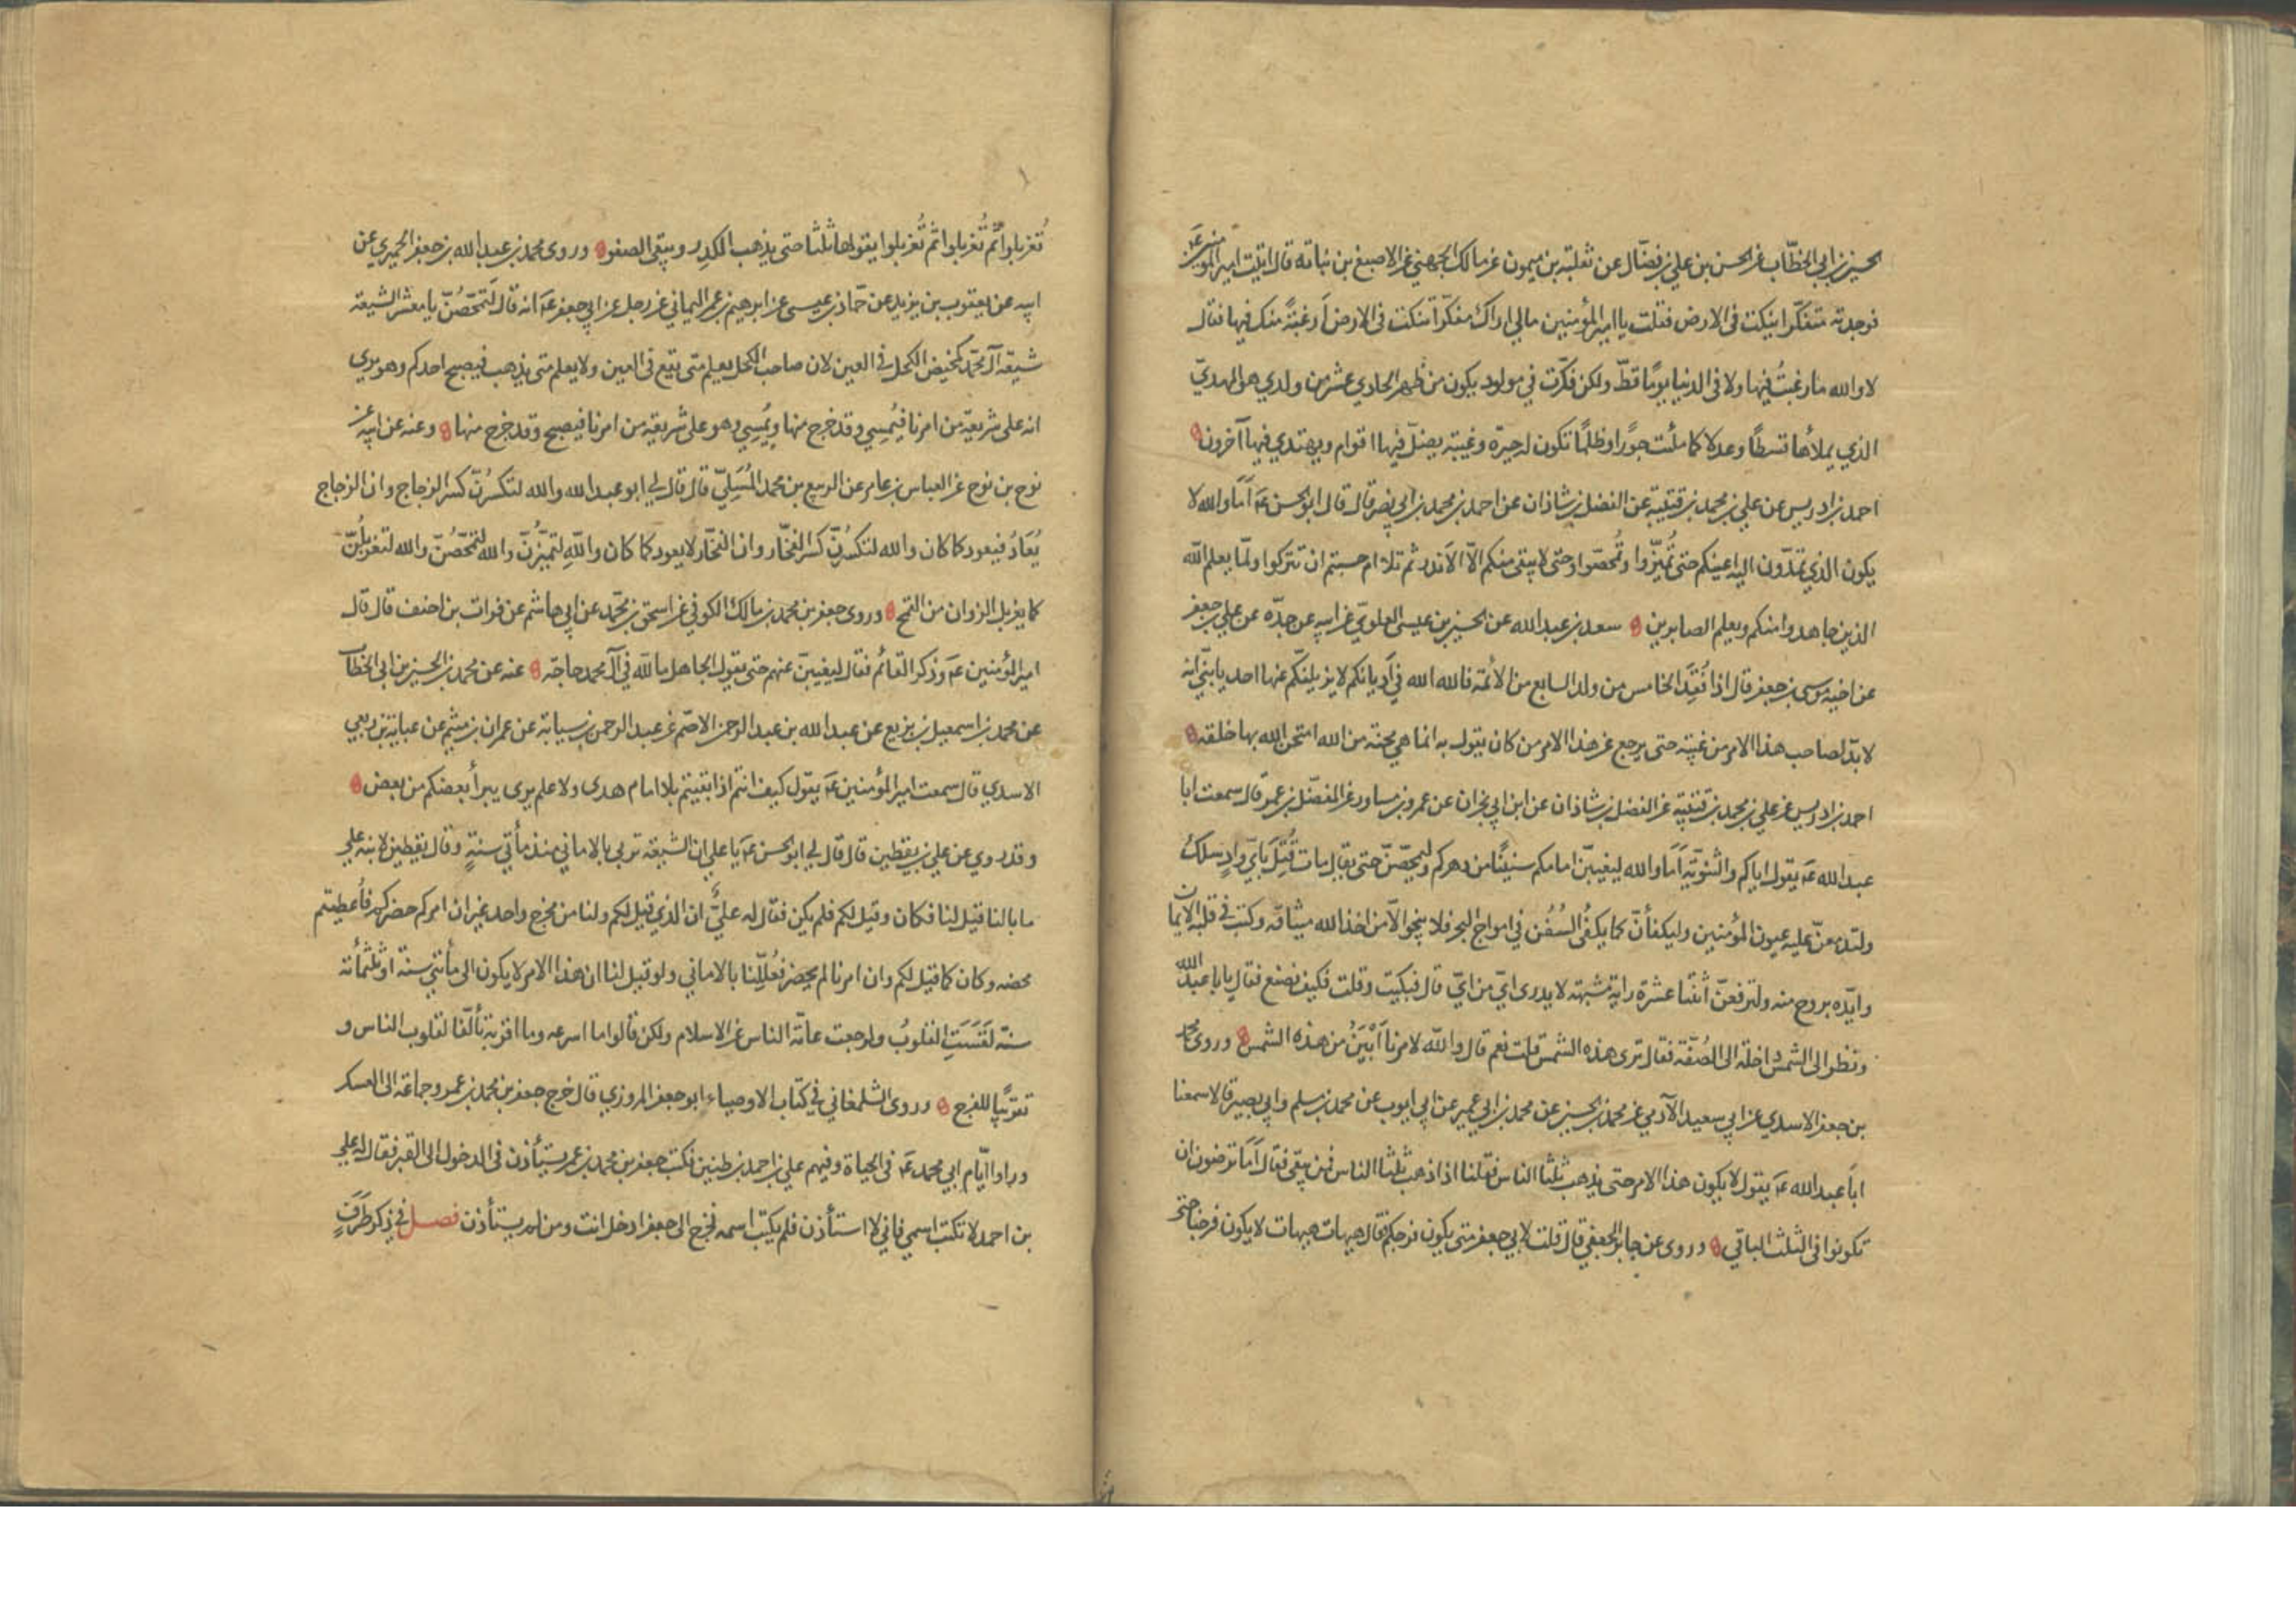 الحسين بن ابي الخطاب عن الحسن بن علي بن فضّال عن ثعلبة بن ميمون عن مالك الجهني عن الاصبغ بن نباتة قال اتيت امير المؤمنين عَ
فوجدته متفكّرا ينكت فى الارض فقلت يا امير المؤمنين مالي اراك مفكّرا تنكت فى الارض أرغبةً منك فيها فقال
لا والله ما رغبتُ فيها ولا فى الدنيا يومًا قطّ ولكن فكّرت في مولود يكون من ظهر الحادي عشر من ولدي هو المهديّ
الذي يملأها قسطًا وعدلا كما ملئت جورًا وظلمًا تكون له حيرة وغيبة يضلّ فيها اقوام ويهتدي فيها آخرون
احمد بن ادريس عن علي بن محمد بن قتيبة عن الفضل بن شاذان عن احمد بن محمد بن ابي نصر قال قال ابو الحسن عَ أَمَا والله لا
يكون الذي تمدّون اليه اعينكم حتى تُميّزوا وتُمحّصوا وحتى لا يبقى منكم الّا الأندر ثم تلا ام حسبتم ان تتركوا ولمّا يعلم الله
الذين جاهدوا منكم ويعلم الصابرين سعد بن عبد الله عن الحسين بن عيسى العلويّ عن ابيه عن جدّه عن علي بن جعفر
عن اخيه موسى بن جعفر قال اذا فُقِدَ الخامس من ولد السابع من الأئمة فالله الله في أديانكم لا يزيلنّكم عنها احد يا بنيّ انه
لا بدّ لصاحب هذا الامر من غيبة حتى يرجع عن هذا الامر من كان يقول به انما هي محنة من الله امتحن الله بها خلقه
احمد بن ادريس عن علي بن محمد بن قتيبة عن الفضل بن شاذان عن ابن ابي نجران عن عمرو بن مساور عن المفضّل بن عمر قال سمعت ابا
عبد الله عَ يقول اياكم والتنويه أَمَا والله ليغيبنّ امامكم سنينًا من دهركم وليمحّصنّ حتى يقال مات قُتِلَ بأيّ وادٍ سلك
ولتدمعنّ عليه عيون المؤمنين وليكفأنّ كما يكفُى السُفُن في امواج البحر فلا ينجو الّا من اخذ الله ميثاقه وكتب في قلبه الايمان
وايّده بروح منه ولترفعنّ اثنتا عشرة راية مشبهة لا يدرى ايّ من ايّ قال فبكيت وقلت فكيف نصنع فقال يابا عبد الله
ونظر الى الشمس داخلة الى الصُفّة فقال ترى هذه الشمس قلت نعم قال والله لامرنا أَبْيَنُ من هذه الشمس وروى محمد
بن جعفر الاسدي عن ابي سعيد الآدمي عن محمد بن الحسين عن محمد بن ابي عمير عن ابي ايوب عن محمد بن مسلم وابي بصير قالا سمعنا
اباَ عبد الله عَ يقول لا يكون هذا الامر حتى يذهب ثلثا الناس فقلنا اذا ذهب ثلثا الناس فمن يبقى فقال أَمَا ترضون ان
تكونوا فى الثلث الباقي وروى عن جابر الجعفي قال قلت لابي جعفر متى يكون فرجكم فقال هيهات هيهات لا يكون فرجنا حتى
تُغربلوا ثم تُغربلوا ثم تُغربلوا يقولها ثلثا حتى يذهب الكدِر ويبقى الصفو وروى محمد بن عبد الله بن جعفر الحميري عن
ابيه عن يعقوب بن يزيد عن حمّاد بن عيسى عن ابرهيم بن عمر اليماني عن رجل عن ابي جعفر عَ انه قال لتمحّصُنّ يا معشر الشيعة
شيعة آل محمّد كمخيض الكحل في العين لان صاحب الكحل يعلم متى يقع فى العين ولا يعلم متى يذهب فيصبح احدكم وهو يرى
انه على شريعة من امرنا فيُمسي وقد خرج منها ويُمسي وهو على شريعة من امرنا فيصبح وقد خرج منها وعنه عن ابيه عن
نوح بن نوح عن العباس بن عامر عن الربيع بن محمد المُسَليّ قال قال لي ابو عبد الله والله لتكسرُنّ كسر الزجاج وان الزجاج
يُعَادُ فيعود كما كان والله لتكسرُنّ كسر الفخّار وان الفخّار لا يعود كما كان واللهِ لتميَّزُنّ والله لتمحّصُنّ والله لتغربلُنّ
كما يغربل الزوان من القمح وروى جعفر بن محمد بن مالك الكوفي عن اسحق بن محمّد عن ابي هاشم عن فرات بن احنف قال قال
امير المؤمنين عَ وذكر القائم فقال ليغيبنّ عنهم حتى يقول الجاهل ما لله في آل محمد حاجة عنه عن محمد بن الحسين بن ابي الخطاب
عن محمد بن اسمعيل بن بزيع عن عبد الله بن عبد الرحمن الاصمّ عن عبد الرحمن بن سيابة عن عمران بن ميثم عن عباية بن ربعي
الاسدي قال سمعت امير المؤمنين عَ يقول كيف انتم اذا بقيتم بلا امام هدى ولا علم يرى يبرأ بعضكم من بعض
وقد روي عن علي بن يقطين قال قال لي ابو الحسن عَ يا علي ان الشيعة تربى بالاماني منذ مأتي سنةٍ وقال يقطين لابنه علي
ما بالنا قيل لنا فكان وقيل لكم فلم يكن فقال له عليٌّ ان الذي قيل لكم ولنا من مخرج واحد غير ان امركم حضركم فأُعطيتم
محضه وكان كما قيل لكم وان امرنا لم يحضر فعُلّلنا بالاماني ولو قيل لنا ان هذا الامر لا يكون الى مأتي سنة او ثلثمأئة
سنة لَقَسَتِ القلوبُ ولرجعت عامّة الناس عن الاسلام ولكن قالوا ما اسرعه وما اقربه تألّفا لقلوب الناس و
تقريبًا للفرج وروى الشلمغاني في كتاب الاوصياء ابو جعفر المروزي قال خرج جعفر بن محمد بن عمر وجماعة الى العسكر
وراوا ايّام ابي محمد عَ فى الحياة وفيهم علي بن احمد بن طنين فكتب جعفر بن محمد بن عمر يستأذن فى الدخول الى القبر فقال له علي
بن احمد لا تكتب اسمي فاني لا استأذن فلم يكتب اسمه فخرج الى جعفر ادخل انت ومن لم يستأذن فصل في ذكر طَرَفٍ